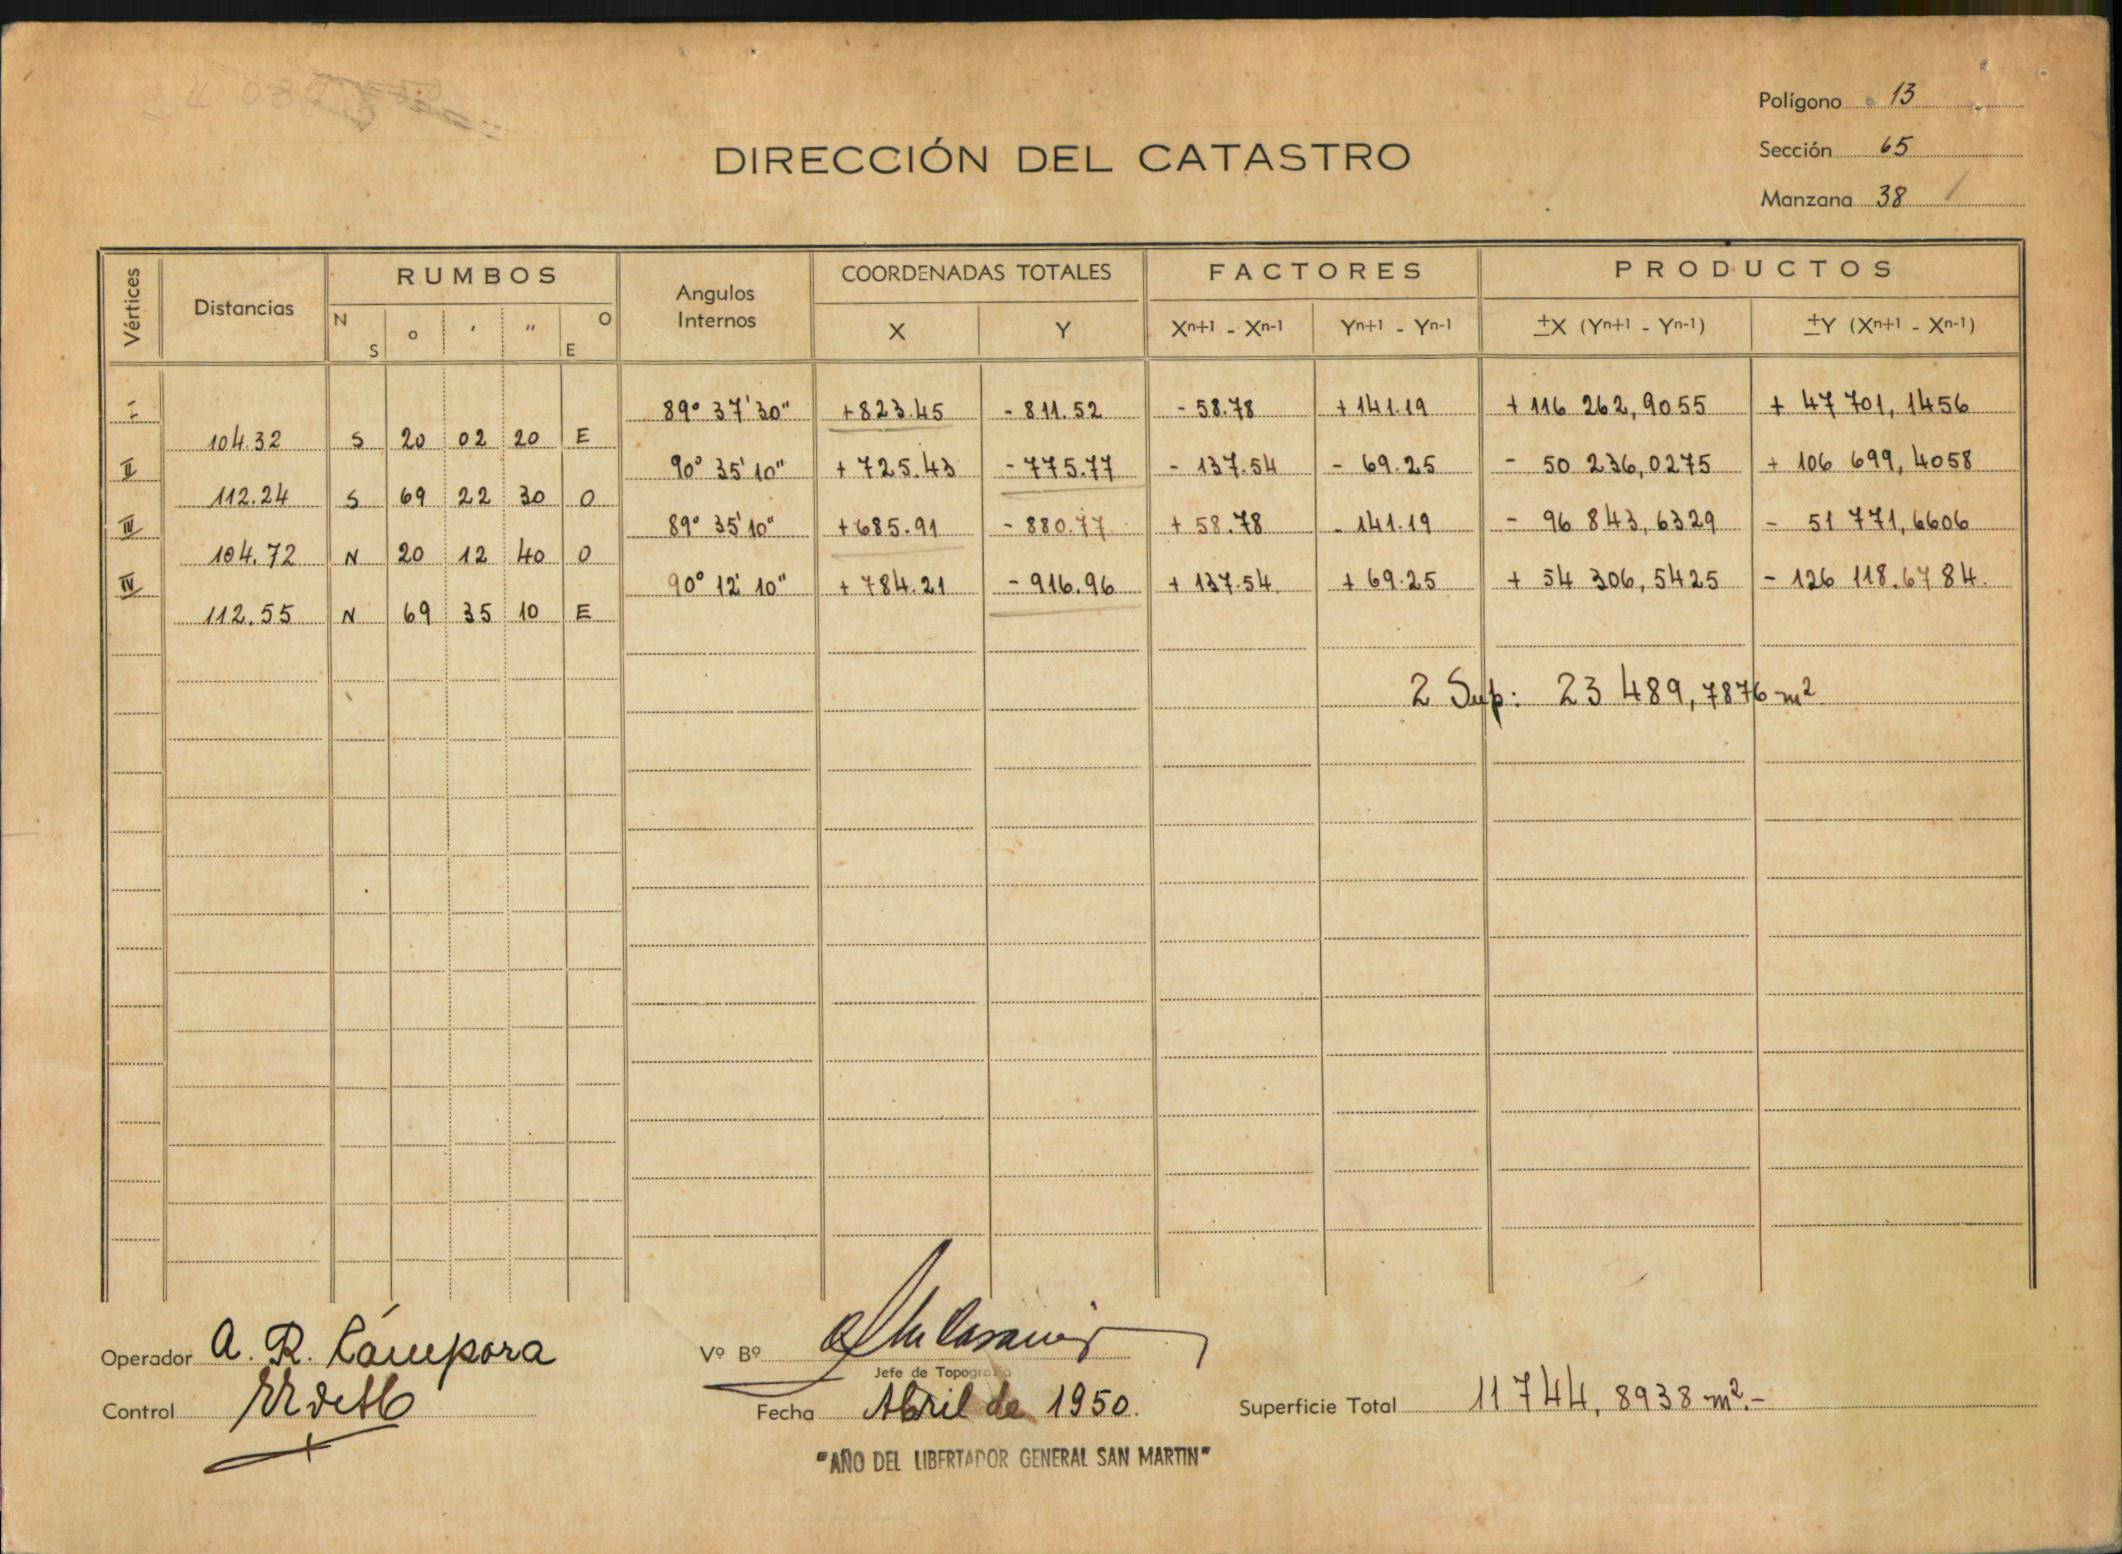 Polígono 13
DIRECCIÓN DEL CATASTRO
Sección 65
Manzana 38
Vértices Distancias RUMBOS Angulos Internos COORDENADAS TOTALES FACTORES PRODUCTOS
N S o ' " O E X Y Xn+1 - Xn-1 Yn+1 - Yn-1 ±X (Yn+1 - Yn-1) ±Y (Xn+1 - Xn-1)
I 89° 37' 30" +823.45 - 811.52 - 58.78 + 141.19 + 116 262,9055 + 47 701,1456
104.32 S 20 02 20 E
II 90° 35' 10" + 725.43 - 775.77 - 137.54 - 69.25 - 50 236,0275 + 106 699,4058
112.24 S 69 22 30 O
III 89° 35' 10" + 685.91 - 880.77 + 58.78 - 141.19 - 96 843,6329 - 51 771,6606
104.72 N 20 12 40 O
IV 90° 12' 10" + 784.21 - 916.96 + 137.54 + 69.25 + 54 306,5425 - 126 118.6784.
112.55 N 69 35 10 E
2 Sup: 23 489,7876 m²
Operador A. R. Cámpora
Vº Bº
Jefe de Topografía
Control
Fecha Abril de 1950.
Superficie Total 11 744,8938 m².-
"AÑO DEL LIBERTADOR GENERAL SAN MARTIN"